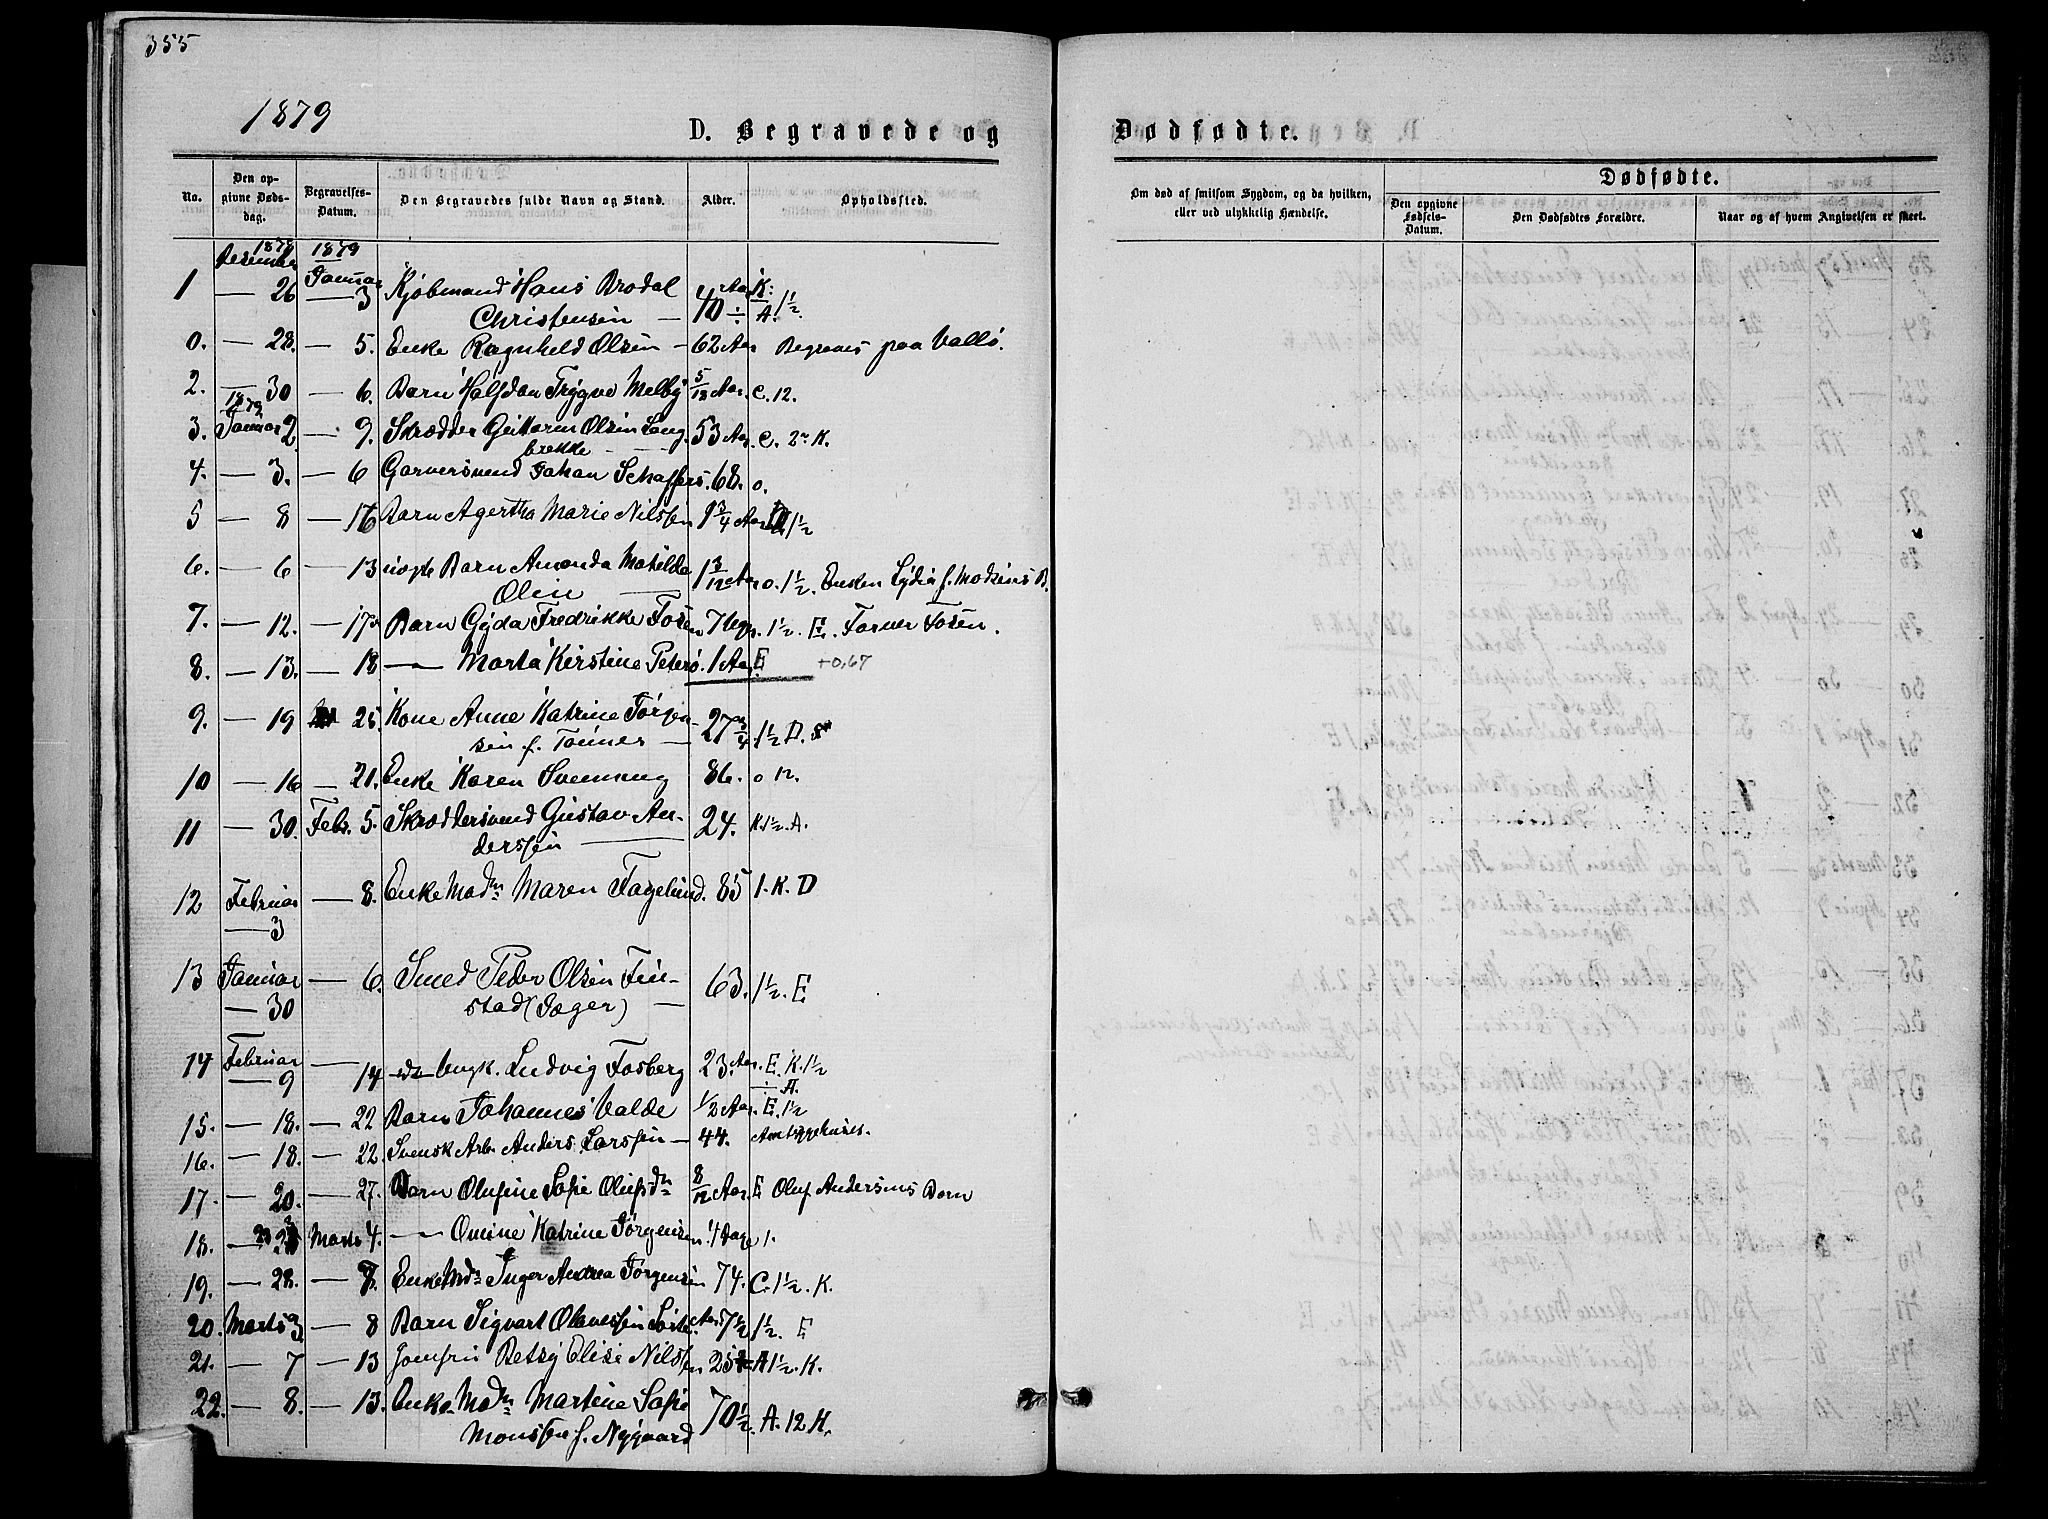 355
1879
D. Begravede og
No.
Den opgivne Dødsdag.
Begravelses-Datum.
Den Begravedes fulde Navn og Stand.
Alder.
Opholdssted.
1878 1879
Desember Januar
1 — 26 — 3 Kjøbmand Hans Brodal 40 Aar K:
Christensen — A. 1½.
0. — 28. — 5. Enke Ragnhild Olsen — 62 Aar Begraves paa Vallø.
2. — 30 — 6. Barn Halfdan Trygve Melby 5/12 Aar. C. 12.
1879
3. Januar 2 — 9. Skrædder Guttorm Olsen Lang 53 Aar. C. 2 K.
brekke
4. — 3. — 6 Garversvend Johan Schaffers. 68. o.
5 — 8 — 16 Barn Agertha Marie Nilssen 1 3/4 Aar 1½
6. — 6 — 13 uægte Barn Amanda Matilde 1 3/12 Aar o. 1½. Enken Lydia f. Madsens B.
Olsen
7. — 12. — 17 Barn Gyda Fredrikke Fosen 7 Uger. 1½. E. Farver Fosen.
8. — 13. — 18 — Marta Kirstine Peterø. 1 Aar E +0,67
9. — 19 25. Kone Anne Katrine Jørgen- 27 3/4 1½ D.
sen f. Tønnes —
10 — 16 — 21. Enke Karen Svenneng 86. o 12.
11 — 30. Febr. 5. Skræddersvend Gustav An- 24. K. 1½. A.
derssen
12 Februar — 8. Enke Madm Maren Fagelund. 85 1. K. D
— 3
13 Januar — 6. Smed Peder Olsen Fin- 63. 1½. E
— 30 stad (Jæger) —
14 Februar — 14 Ungk. Ludvig Fosberg 23 Aar. E. K. 1½
— 9 A.
15. — 18. — 22 Barn Johannes Valde ½ Aar. E. 1½
16. — 18. — 22. Svensk Arb. Anders Larssen — 44. Amtsygehuset.
17. — 20. — 27. Barn Olufine Sofie Olufsdn 8/12 Aar. E Oluf Andersens Barn
18. — Marts 4. — Omine Katrine Jørgensen. 4 Dage 1.
19. — 28. — 7. Enke Mdm Inger Andrea Jørgensen 74. C. 1½. K.
20. Marts 3. — 8 Barn Sigvart Olaves­sen Aar 7½ 1½. E
21. — 7 — 13 Jomfru Betsy Elise Nilssen 25 A 1½. K.
22. — 8. — 13. Enke Madm Martine Sofie 70½. A. 12 K.
Monssen f. Nygaard
Dødfødte.
Om død af smitsom Sygdom, og da hvilken,
eller ved ulykkelig Hændelse.
Dødfødte.
Den opgivne Fødsels-Datum.
Den Dødfødtes Forældre.
Naar og af hvem Angivelsen er skeet.